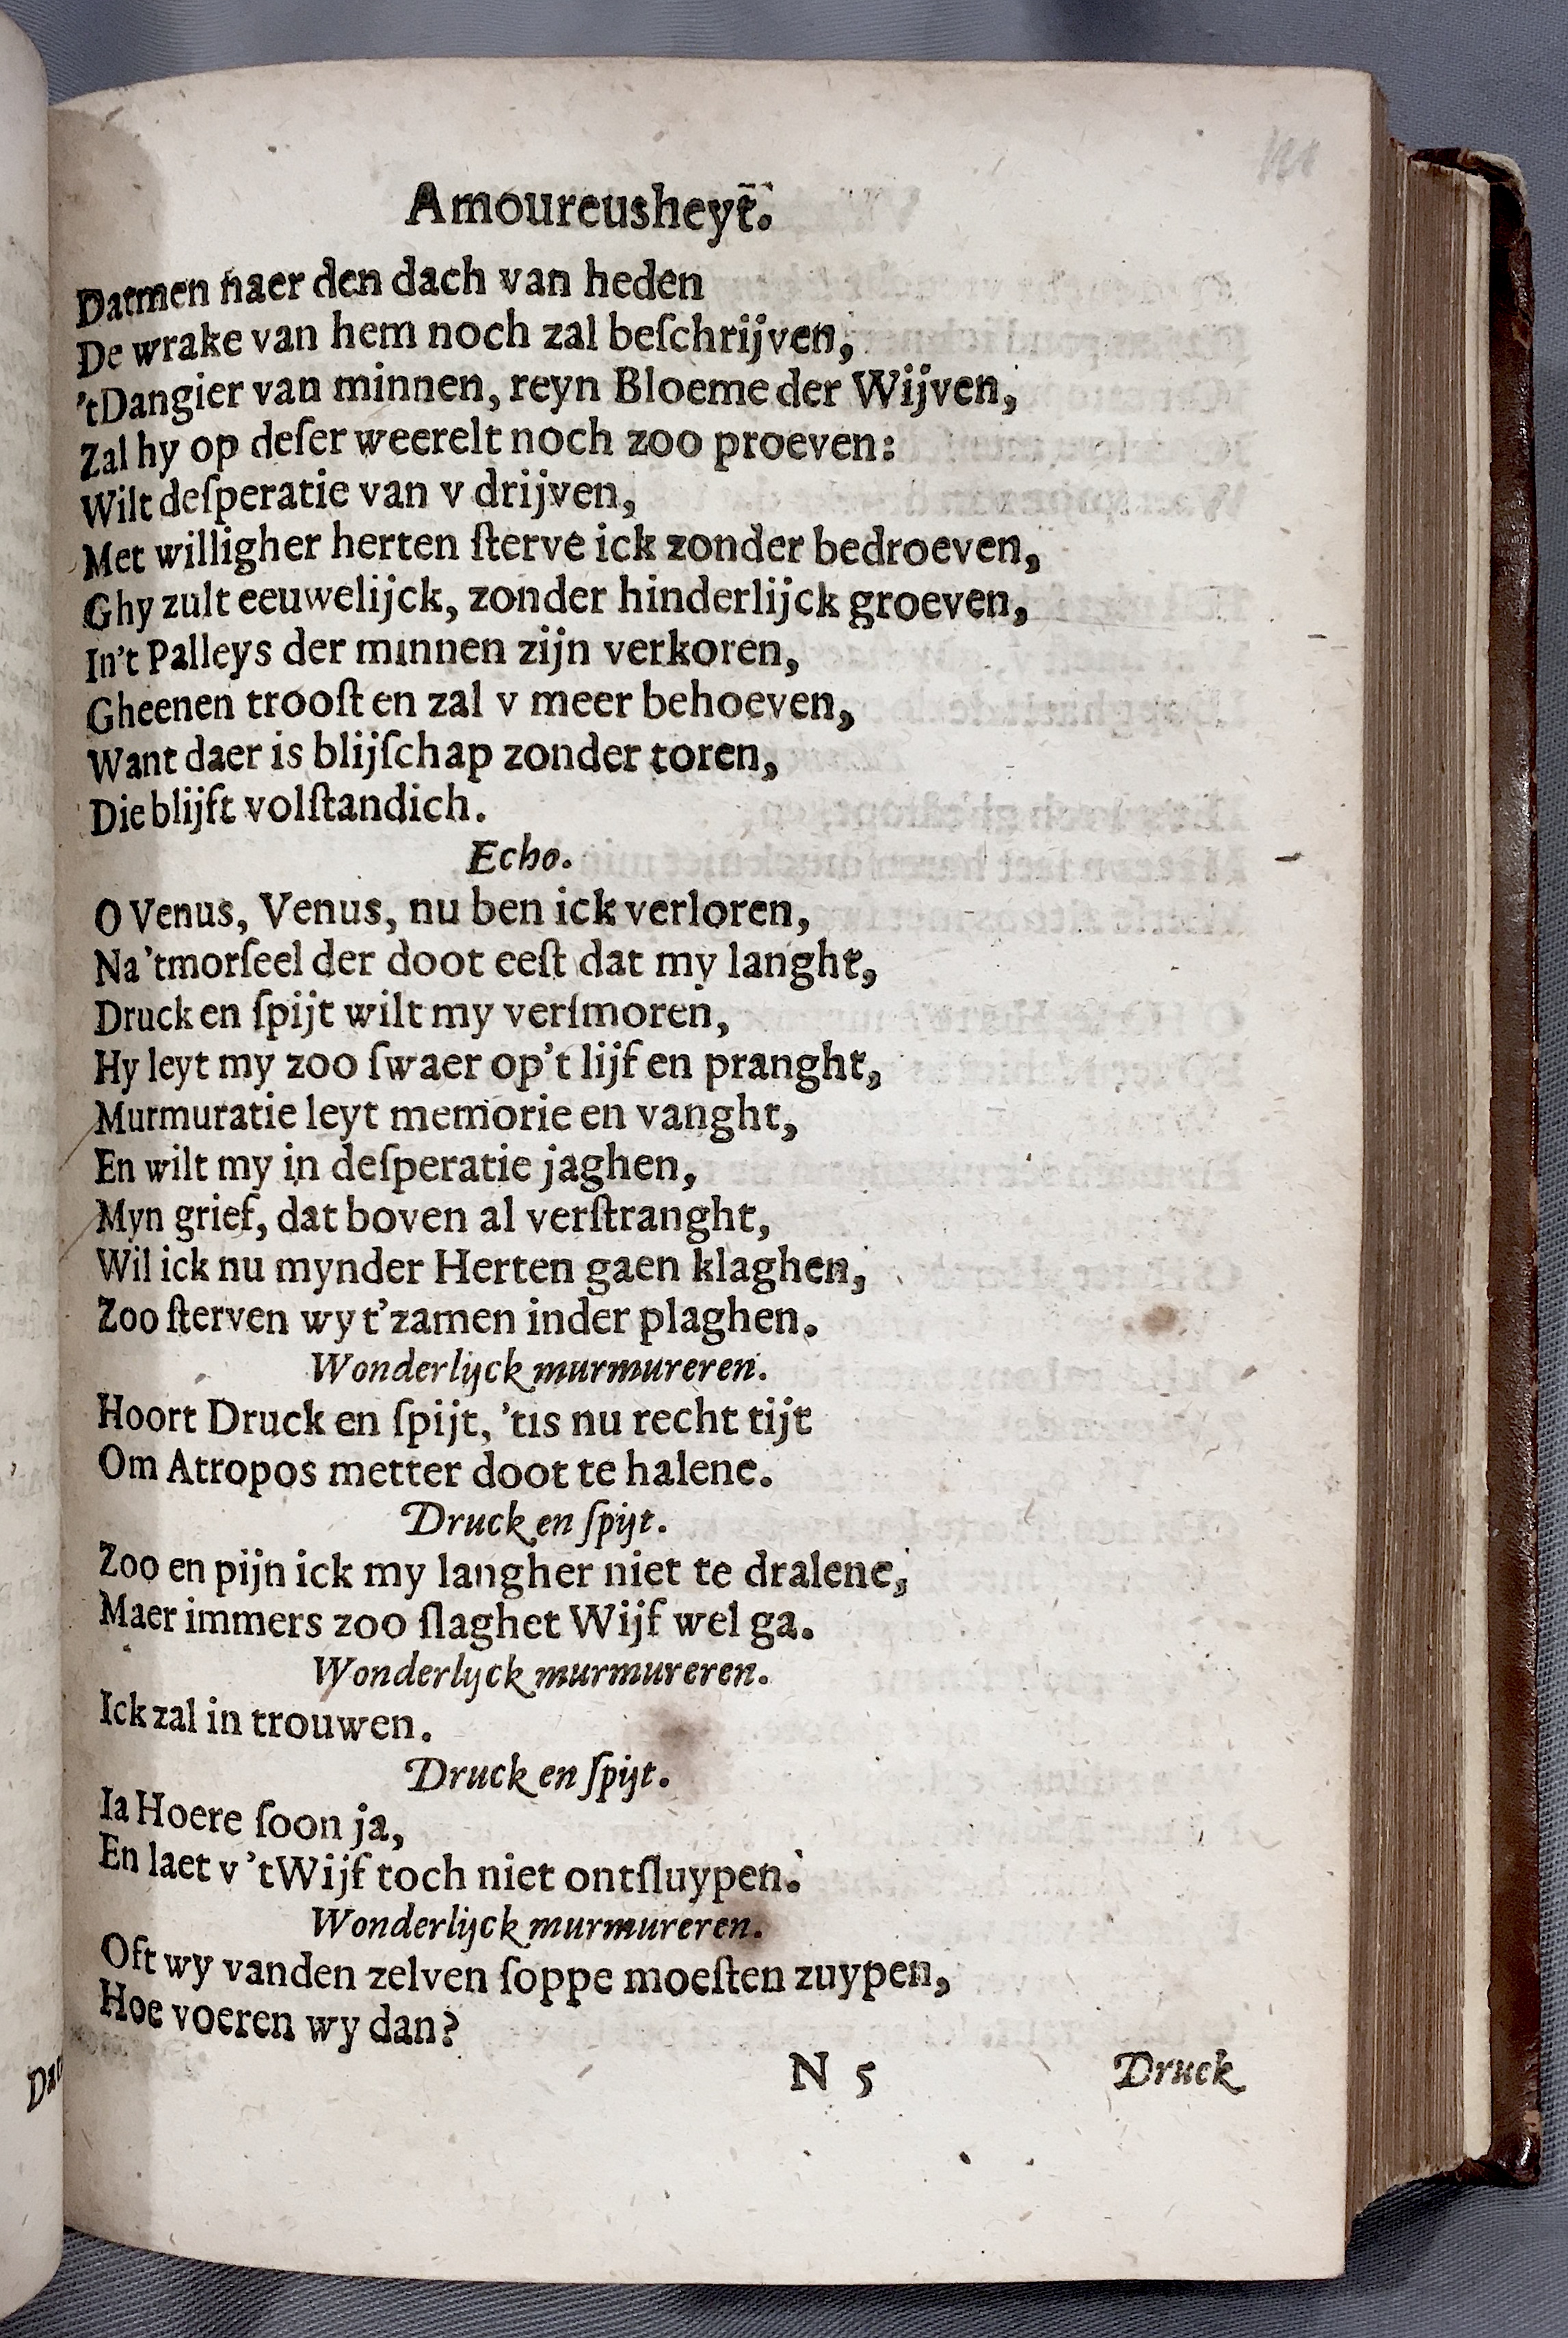 Amoureusheyt.
Datmen naer den dach van heden
De wrake van hem noch zal beſchrijven,
'tDangier van minnen, reyn Bloeme der Wijven,
Zal hy op deſer weerelt noch zoo proeven:
Wilt deſperatie van v drijven,
Met willigher herten ſterve ick zonder bedroeven,
Ghy zult eeuwelijck, zonder hinderlijck groeven,
In't Palleys der minnen zijn verkoren,
Gheenen trooſt en zal v meer behoeven,
Want daer is blijſchap zonder toren,
Die blijft volſtandich.
Echo.
O Venus, Venus, nu ben ick verloren,
Na 'tmorſeel der doot eeſt dat my langht,
Druck en ſpijt wilt my verſmoren,
Hy leyt my zoo ſwaer op't lijf en pranght,
Murmuratie leyt memorie en vanght,
En wilt my in deſperatie jaghen,
Myn grief, dat boven al verſtranght,
Wil ick nu mynder Herten gaen klaghen,
Zoo ſterven wy t'zamen inder plaghen.
Wonderlijck murmureren.
Hoort Druck en ſpijt, 'tis nu recht tijt
Om Atropos metter doot te halene.
Druck en ſpijt.
Zoo en pijn ick my langher niet te dralene,
Maer immers zoo ſlaghet Wijf wel ga.
Wonderlijck murmureren.
Ick zal in trouwen.
Druck en ſpijt.
Ia Hoere ſoon ja,
En laet v 'tWijf toch niet ontſluypen.
Wonderlijck murmureren.
Oft wy vanden zelven ſoppe moeſten zuypen,
Hoe voeren wy dan?
N 5 Druck